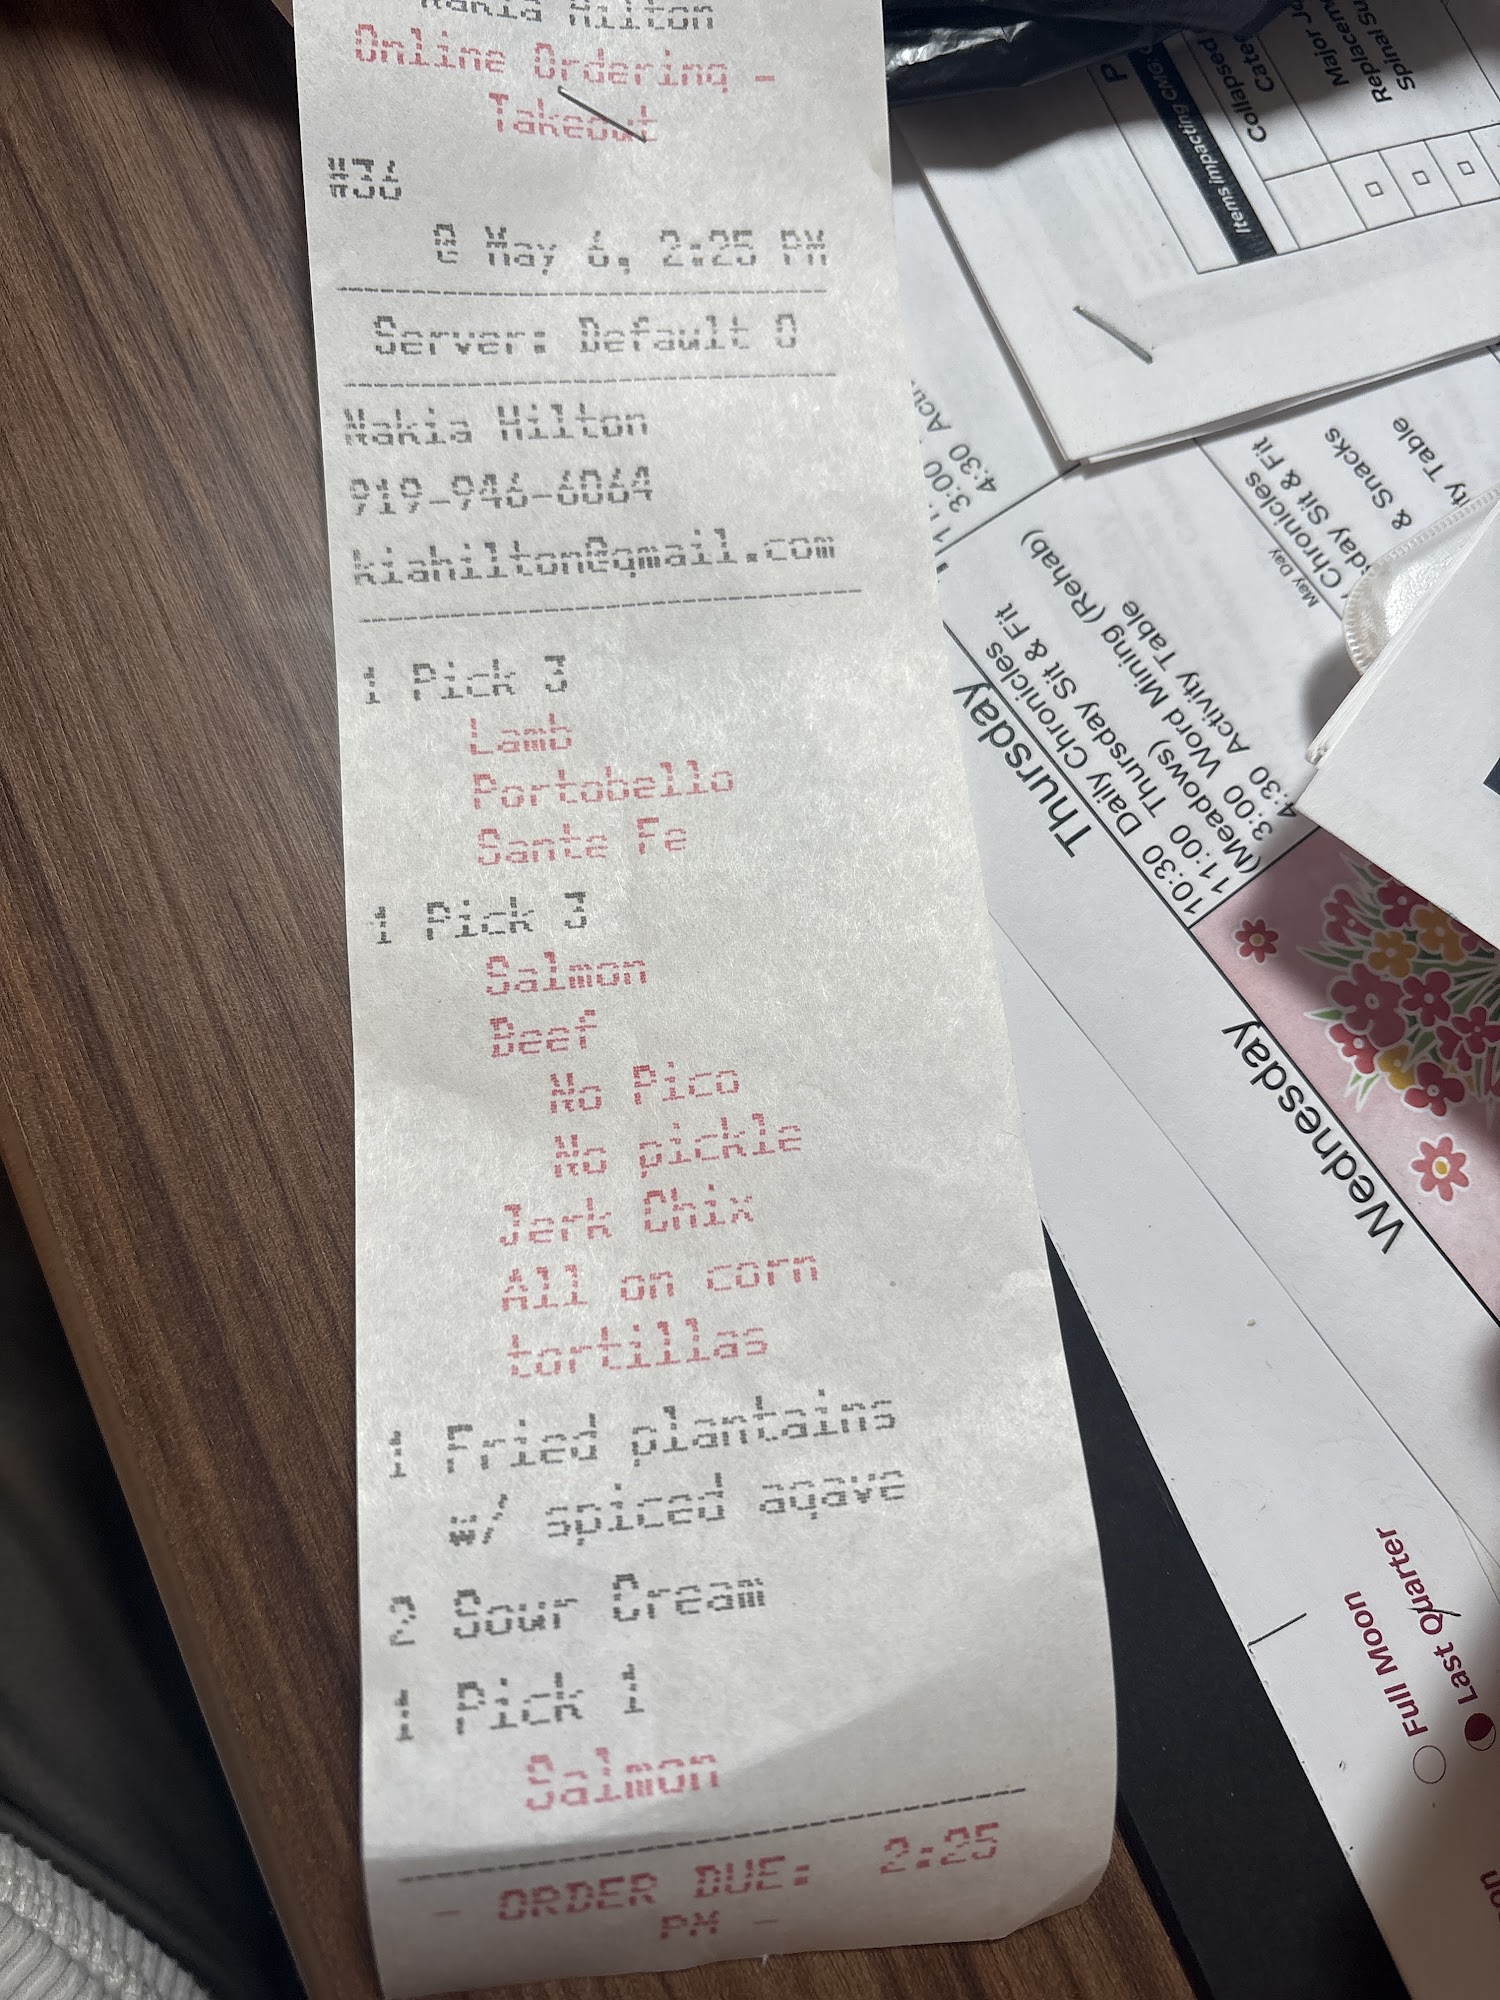 Nakia Hilton
Online Ordering -
Takeout
@ May 6, 2:25 PM
Server: Default O
Nakia Hilton
919-946-6064
kiahilton@gmail.com
1 Pick 3
Lamb
Portobello
Sante Fe
1 Pick 3
Salmon
Beef
No Pico
No pickle
Jerk Chix
All on corn
tortillas
1 Fried plantains
w/ spiced agave
2 Sour Cream
1 Pick 1
Salmon
- ORDER DUE: 2:25
PM -
P
Items impacting CMG
Collapsed
Major Jo
Spinal Su
3:00
4:30
Chronicles
Sit & Fit
& Snacks
Table
May Day
Thursday
10:30 Daily Chronicles
11:00 Thursday Sit & Fit
(Meadows)
3:00 Word Mining (Rehab)
4:30 Activity Table
Wednesday
Full Moon
Last Quarter